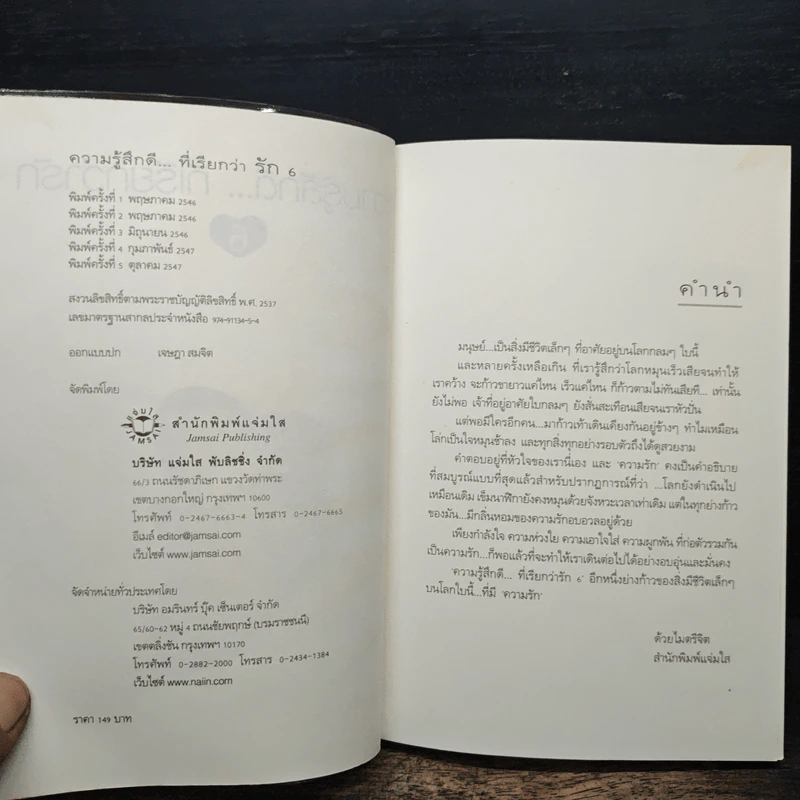 ความรู้สึกดี... ที่เรียกว่า รัก 6
พิมพ์ครั้งที่ 1 พฤษภาคม 2546
พิมพ์ครั้งที่ 2 พฤษภาคม 2546
พิมพ์ครั้งที่ 3 มิถุนายน 2546
พิมพ์ครั้งที่ 4 กุมภาพันธ์ 2547
พิมพ์ครั้งที่ 5 ตุลาคม 2547
สงวนลิขสิทธิ์ตามพระราชบัญญัติลิขสิทธิ์ พ.ศ. 2537
เลขมาตรฐานสากลประจำหนังสือ 974-91134-5-4
ออกแบบปก เจษฎา สมจิต
จัดพิมพ์โดย
แจ่มใส
JAMSAI
สำนักพิมพ์แจ่มใส
Jamsai Publishing
บริษัท แจ่มใส พับลิชชิ่ง จำกัด
66/3 ถนนรัชดาภิเษก แขวงวัดท่าพระ
เขตบางกอกใหญ่ กรุงเทพฯ 10600
โทรศัพท์ 0-2467-6663-4 โทรสาร 0-2467-6665
อีเมล์ editor@jamsai.com
เว็บไซต์ www.jamsai.com
จัดจำหน่ายทั่วประเทศโดย
บริษัท อมรินทร์ บุ๊ค เซ็นเตอร์ จำกัด
65/60-62 หมู่ 4 ถนนชัยพฤกษ์ (บรมราชชนนี)
เขตตลิ่งชัน กรุงเทพฯ 10170
โทรศัพท์ 0-2882-2000 โทรสาร 0-2434-1384
เว็บไซต์ www.naiin.com
ราคา 149 บาท
คำนำ
มนุษย์...เป็นสิ่งมีชีวิตเล็กๆ ที่อาศัยอยู่บนโลกกลมๆ ใบนี้
และหลายครั้งเหลือเกิน ที่เรารู้สึกว่าโลกหมุนเร็วเสียจนทำให้
เราคว้าง จะก้าวขายาวแค่ไหน เร็วแค่ไหน ก็ก้าวตามไม่ทันเสียที... เท่านั้น
ยังไม่พอ เจ้าที่อยู่อาศัยใบกลมๆ ยังสั่นสะเทือนเสียจนเราหัวปั่น
แต่พอมีใครอีกคน...มาก้าวเท้าเดินเคียงกันอยู่ข้างๆ ทำไมเหมือน
โลกเป็นใจหมุนช้าลง และทุกสิ่งทุกอย่างรอบตัวถึงได้ดูสวยงาม
คำตอบอยู่ที่หัวใจของเรานี่เอง และ 'ความรัก' คงเป็นคำอธิบาย
ที่สมบูรณ์แบบที่สุดแล้วสำหรับปรากฏการณ์ที่ว่า ...โลกยังดำเนินไป
เหมือนเดิม เข็มนาฬิกายังคงหมุนด้วยจังหวะเวลาเท่าเดิม แต่ในทุกย่างก้าว
ของมัน...มีกลิ่นหอมของความรักอบอวลอยู่ด้วย
เพียงกำลังใจ ความห่วงใย ความเอาใจใส่ ความผูกพัน ที่ก่อตัวรวมกัน
เป็นความรัก...ก็พอแล้วที่จะทำให้เราเดินต่อไปได้อย่างอบอุ่นและมั่นคง
'ความรู้สึกดี... ที่เรียกว่ารัก 6' อีกหนึ่งย่างก้าวของสิ่งมีชีวิตเล็กๆ
บนโลกใบนี้...ที่มี 'ความรัก'
ด้วยไมตรีจิต
สำนักพิมพ์แจ่มใส